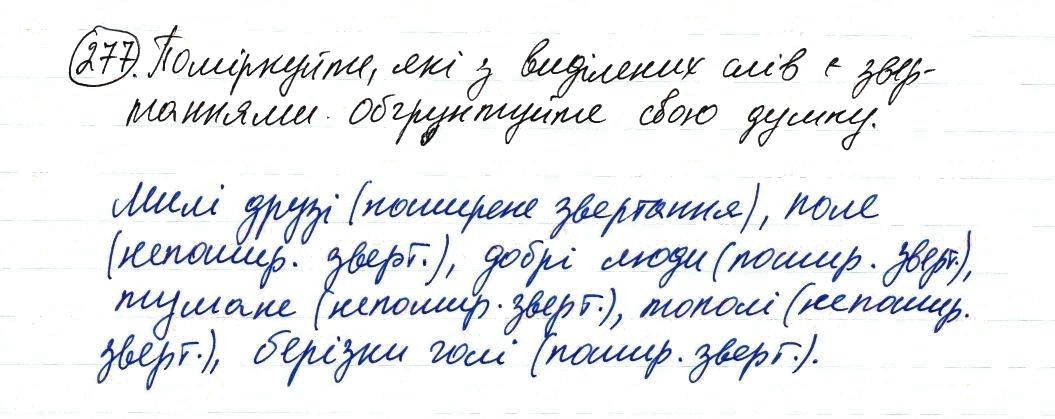 277. Поміркуйте, які з виділених слів є звер-
таннями. Обґрунтуйте свою думку.
Милі друзі (поширене звертання), поле
(непошир. зверт.), добрі люди (пошир. зверт.),
тумане (непошир. зверт.), тополі (непошир.
зверт.), берізки голі (пошир. зверт.).